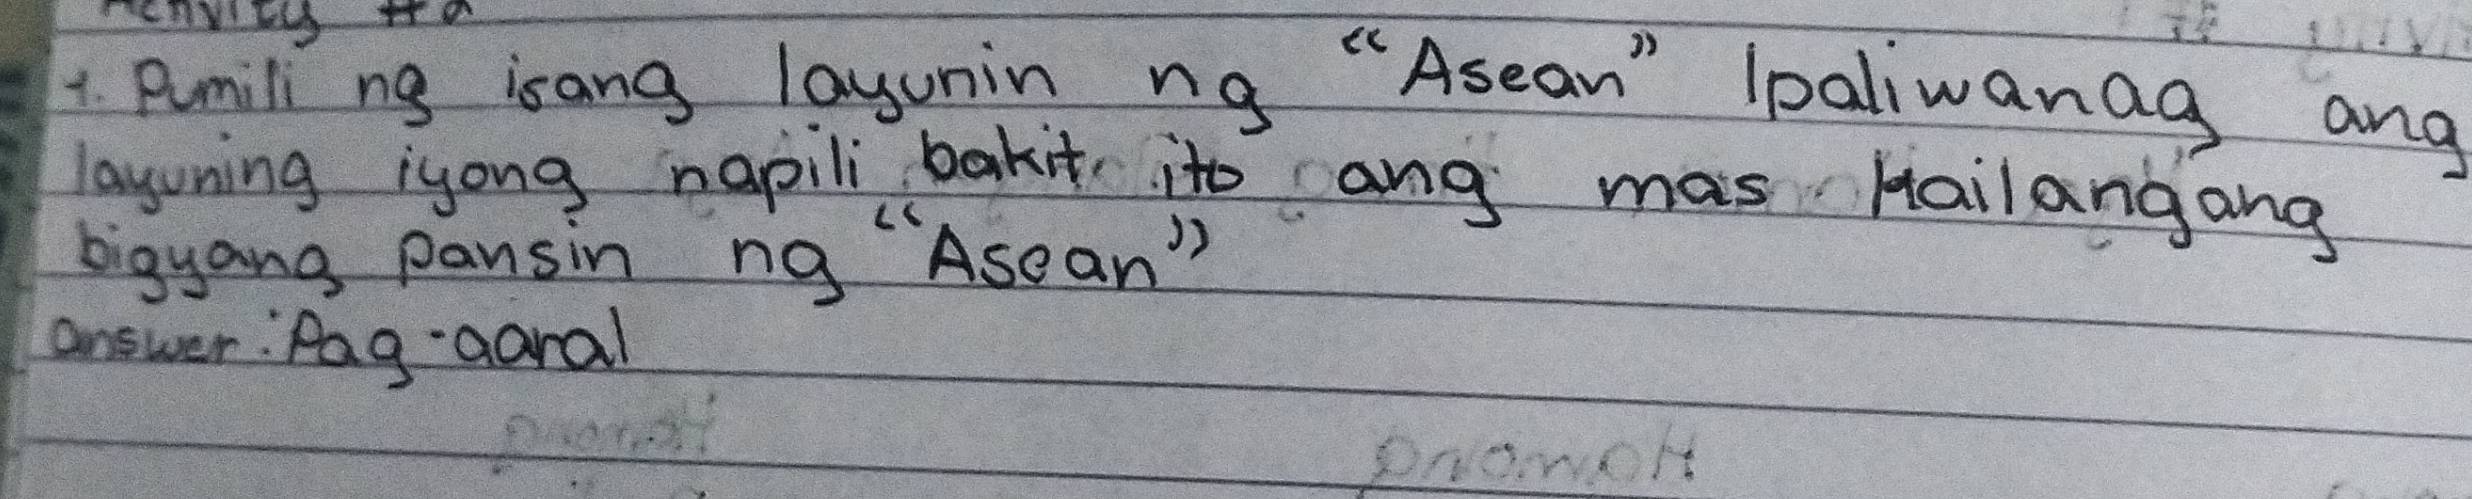 Activity #2
1. Pumili ng isang layunin ng "Asean" Ipaliwanag ang
layuning iyong napili bakit ito ang mas Kailangang
bigyang pansin ng "Asean"
answer: Pag-aaral